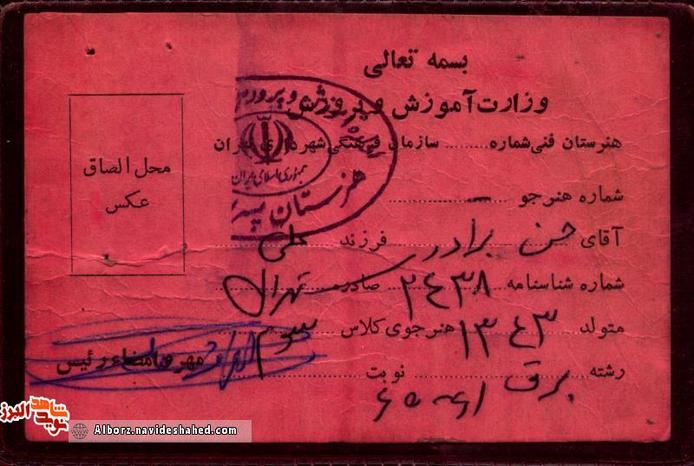 بسمه تعالی
وزارت آموزش و پرورش
هنرستان فنی شماره ........ سازمان فرهنگی شهرداری تهران
شماره هنرجو
آقای حسن برادر فرزند علی
شماره شناسنامه ۲۴۳۸ صادره تهران
متولد ۱۳۴۳ هنرجوی کلاس سوم
رشته برق نوبت
مهر و امضاء رئیس
محل الصاق
عکس
جمهوری اسلامی ایران
هنرستان
شاهد
نوید
البرز
Alborz.navideshahed.com